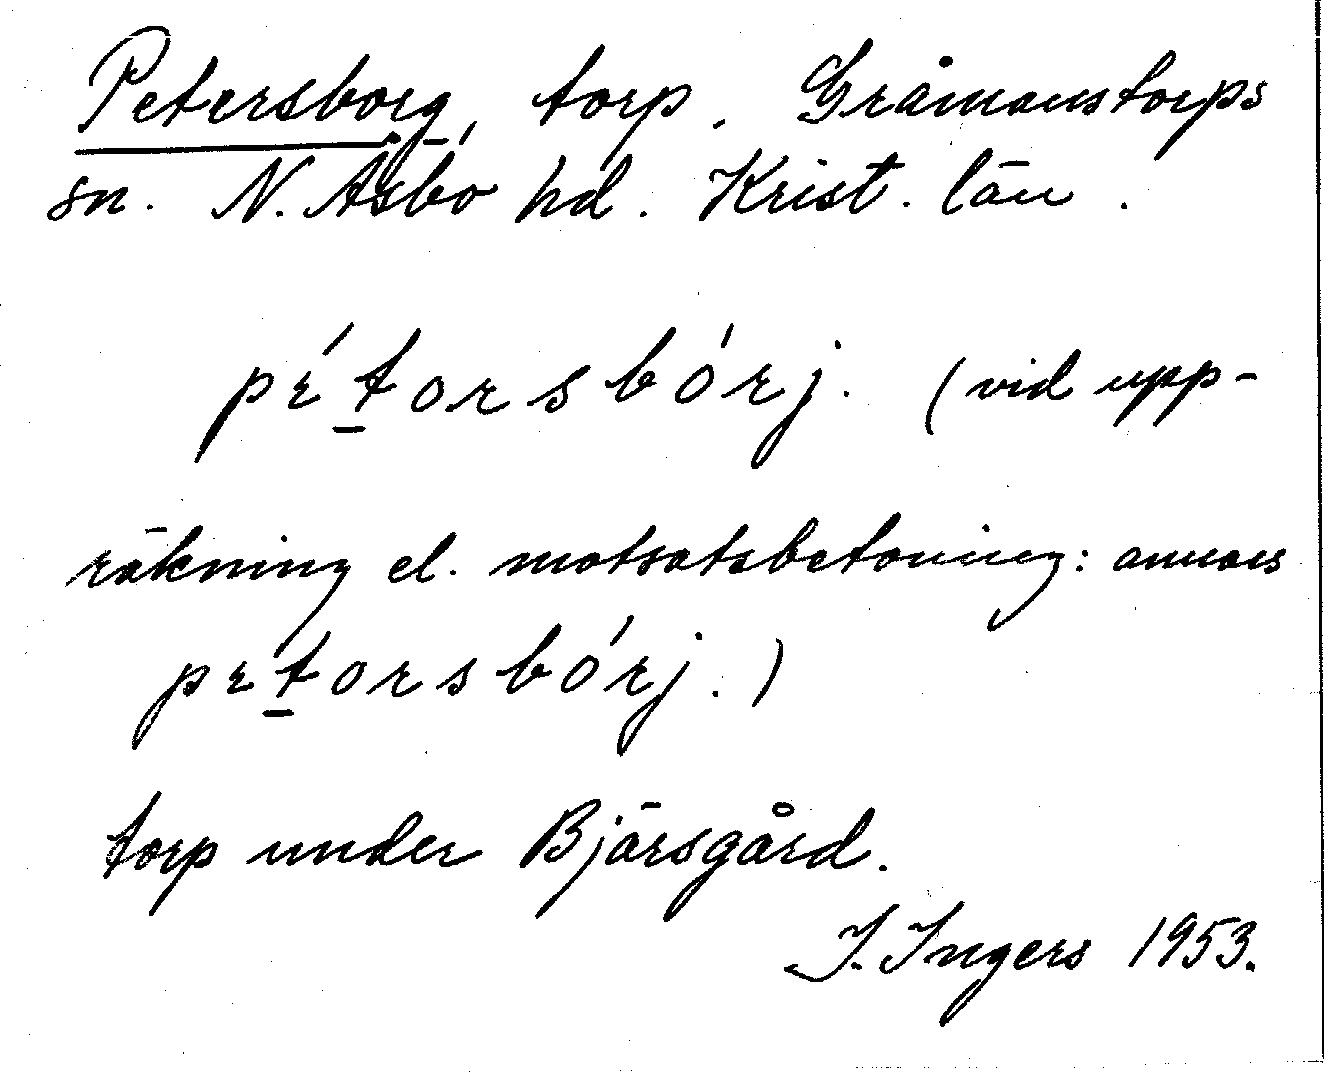 Petersborg, torp. Gråmanstorps
sn. N. Åsbo hd. Krist. län.
pétorsbórj. (vid upp-
räkning el. motsatsbetoning: annars
petorsbórj.)
torp under Bjärsgård.
I. Ingers 1953.